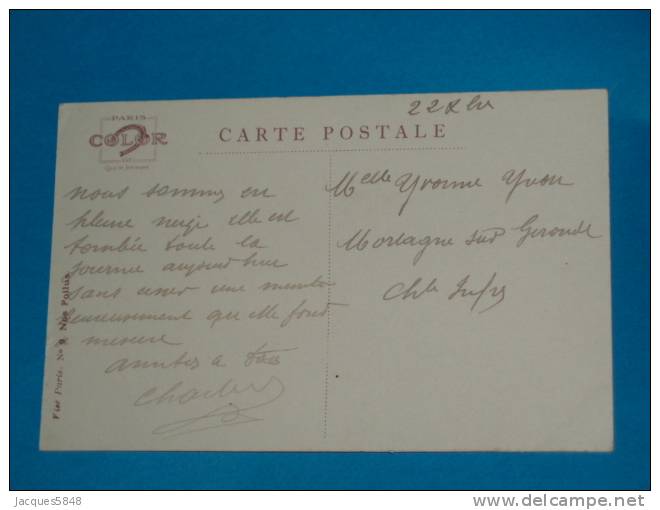 PARIS
COLOR
CARTE POSTALE
nous sommes en
pleine neige elle est
tombée toute la
journée aujourd'hui
sans cesser une minute
heureusement que elle fond
mesure
amitiés a tous
Charles
Melle Yvonne Yvon
Mortagne sur Gironde
Chte Infre
Visé Paris. No 9. Nos Poilus
Jacques5848
http://www.delcampe.net